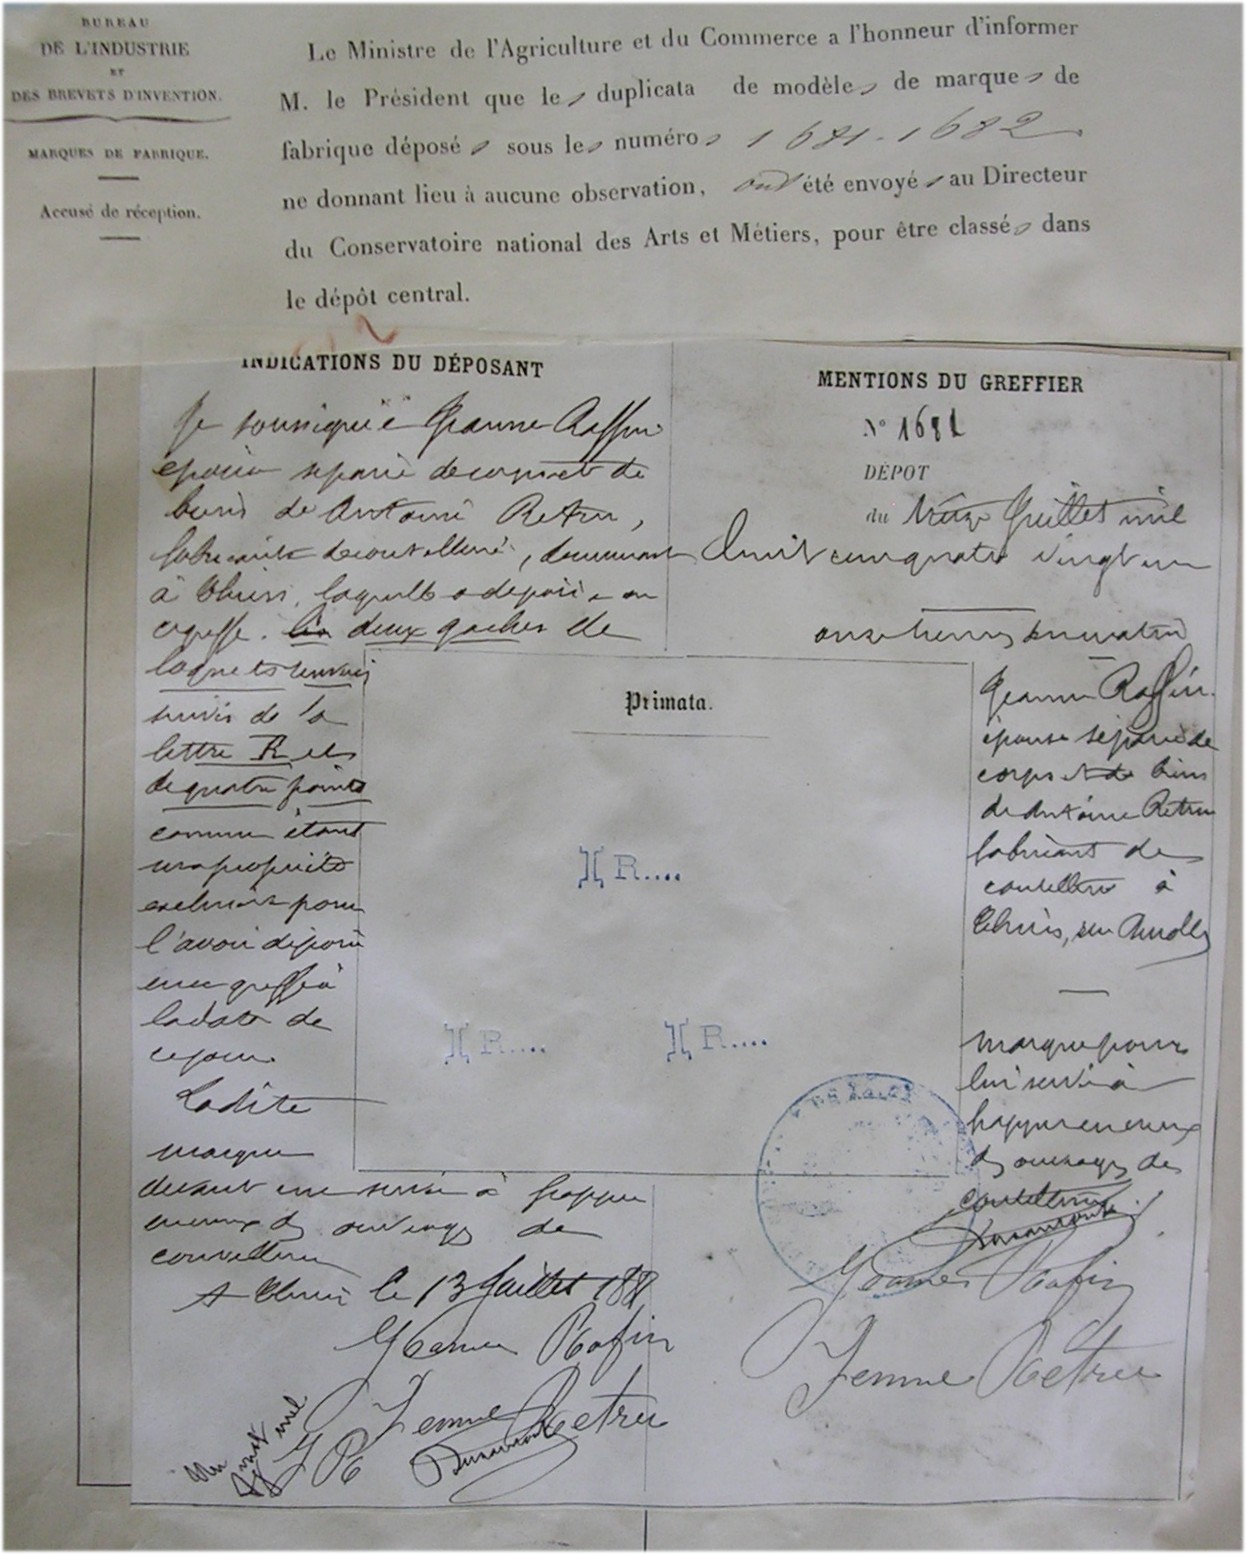 BUREAU
DE L'INDUSTRIE
ET
DES BREVETS D'INVENTION.
MARQUES DE FABRIQUE.
Accusé de réception.
Le Ministre de l'Agriculture et du Commerce a l'honneur d'informer
M. le Président que les duplicata de modèles de marques de
fabrique déposés sous les numéros 1681-1682
ne donnant lieu à aucune observation, ont été envoyés au Directeur
du Conservatoire national des Arts et Métiers, pour être classés dans
le dépôt central.
2
INDICATIONS DU DÉPOSANT
Je soussignée Jeanne Raffin
épouse séparée de corps et de
biens de Antoine Retru,
fabricante de coutellerie, demeurant
à Thiers, laquelle a déposé au
greffe. deux gaches de
loquets
suivis de la
lettre R et
de quatre points
comme étant
ma propriété
exclusive pour
l'avoir déposé
au greffe à
la date de
ce jour.
Ladite
marque
devant me servir à frapper
ouvrages de
coutellerie
A Thiers le 13 Juillet 188
Jeanne Rafin
Femme Retru
mot nul
JR
MENTIONS DU GREFFIER
N° 1681
DÉPOT
du treize Juillet mil
huit cent quatre vingt un
onze heures du matin
Jeanne Raffin
épouse séparée de
corps et de biens
de Antoine Retru
fabricant de
coutellerie à
Thiers,
marque pour
lui servir à
frapper
ouvrages de
coutellerie
Jeanne Rafin
Femme Retru
Primata.
R....
R....
R....